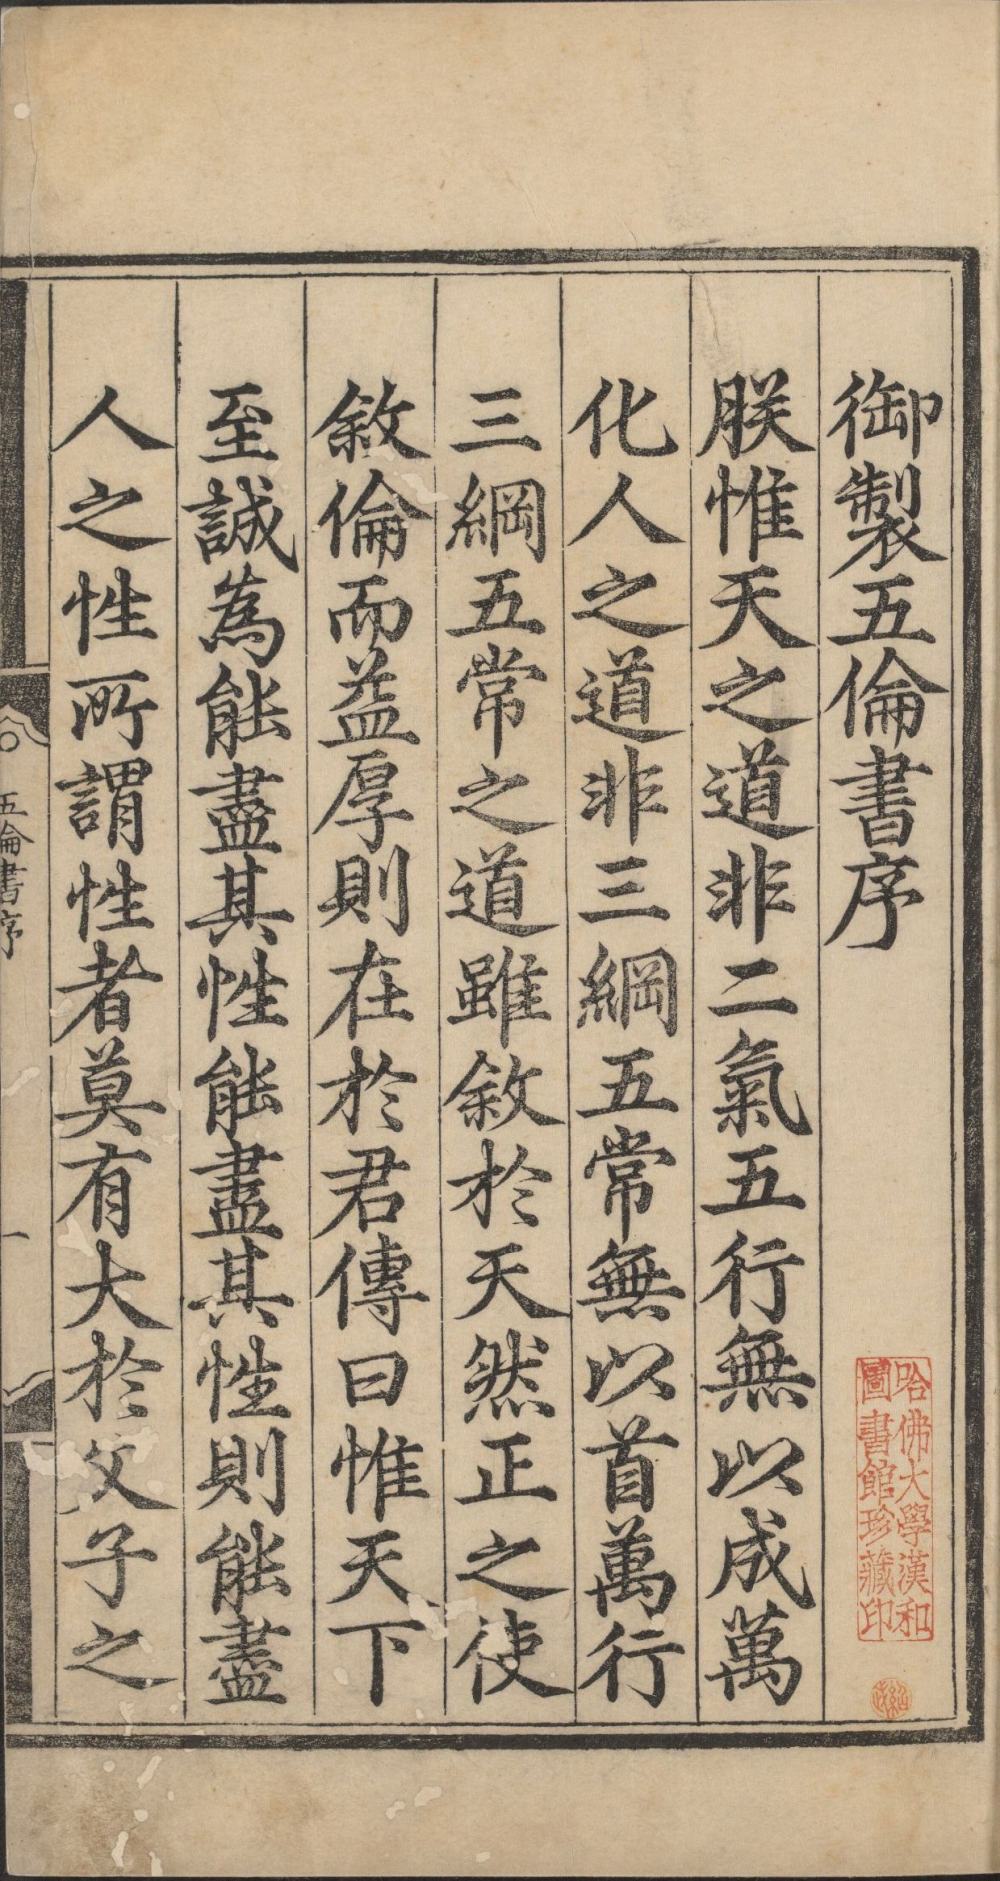 御製五倫書序
朕惟天之道非二氣五行無以成萬
化人之道非三綱五常無以首萬行
三綱五常之道雖敘於天然正之使
敘倫而益厚則在於君傳曰惟天下
至誠為能盡其性能盡其性則能盡
人之性所謂性者莫有大於父子之
五倫書序
一
哈佛大學漢和
圖書館珍藏印